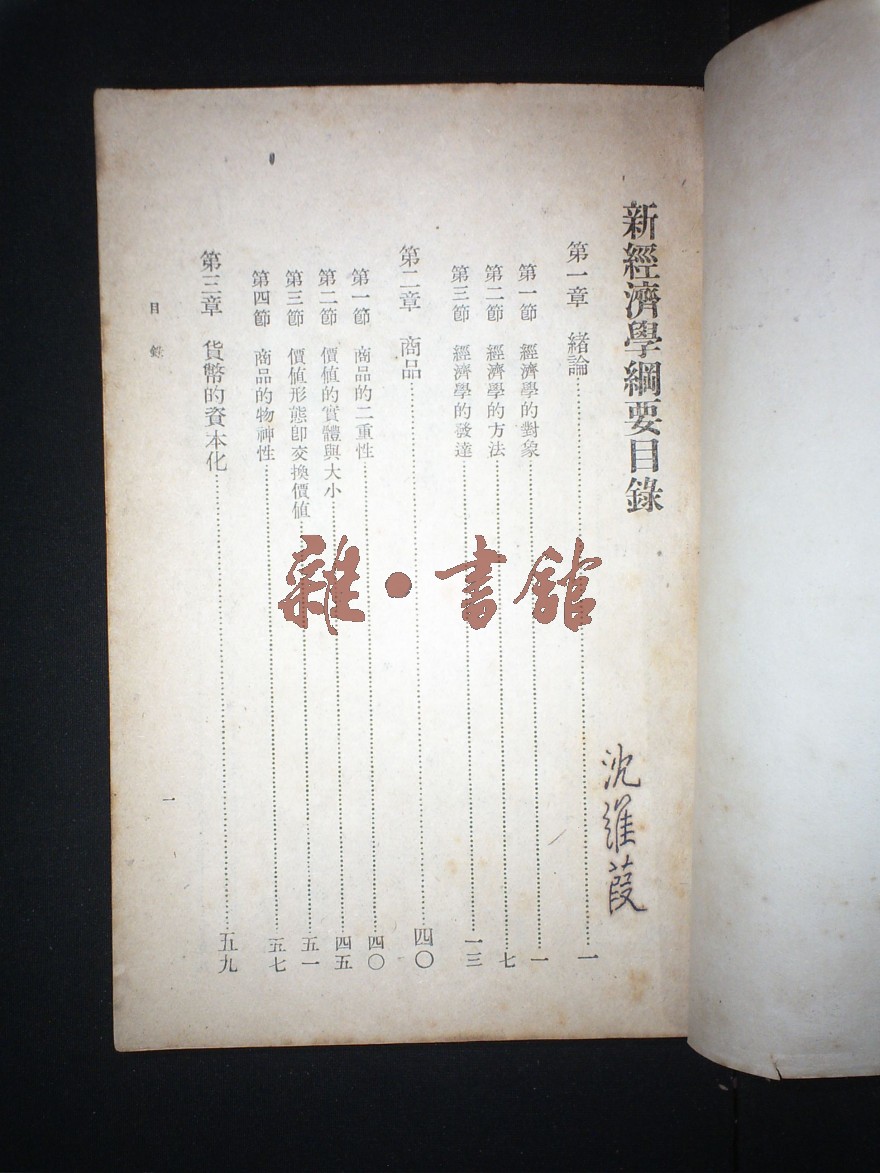 新經濟學綱要目錄
第一章 緒論……一
第一節 經濟學的對象……一
第二節 經濟學的方法……七
第三節 經濟學的發達……一三
第二章 商品……四〇
第一節 商品的二重性……四〇
第二節 價值的實體與大小……四五
第三節 價值形態卽交換價值……五一
第四節 商品的物神性……五七
第三章 貨幣的資本化……五九
目錄
一
沈維葭
雜·書館